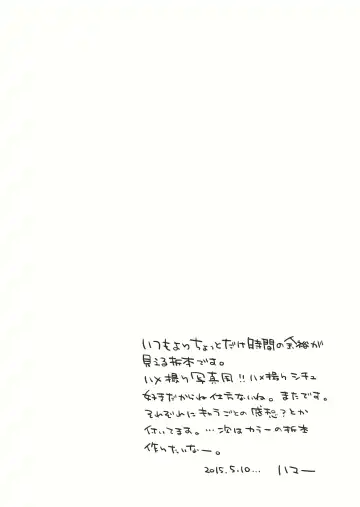 いつもよりちょっとだけ時間の余裕が
見える折本です。
ハメ撮り写真風!!ハメ撮りシチュ
好きだからね仕方ないね。またです。
それぞれにキャラごとの感想?とか
付いてます。…次はカラーの折本
作りたいなー。
2015.5.10… ハマー